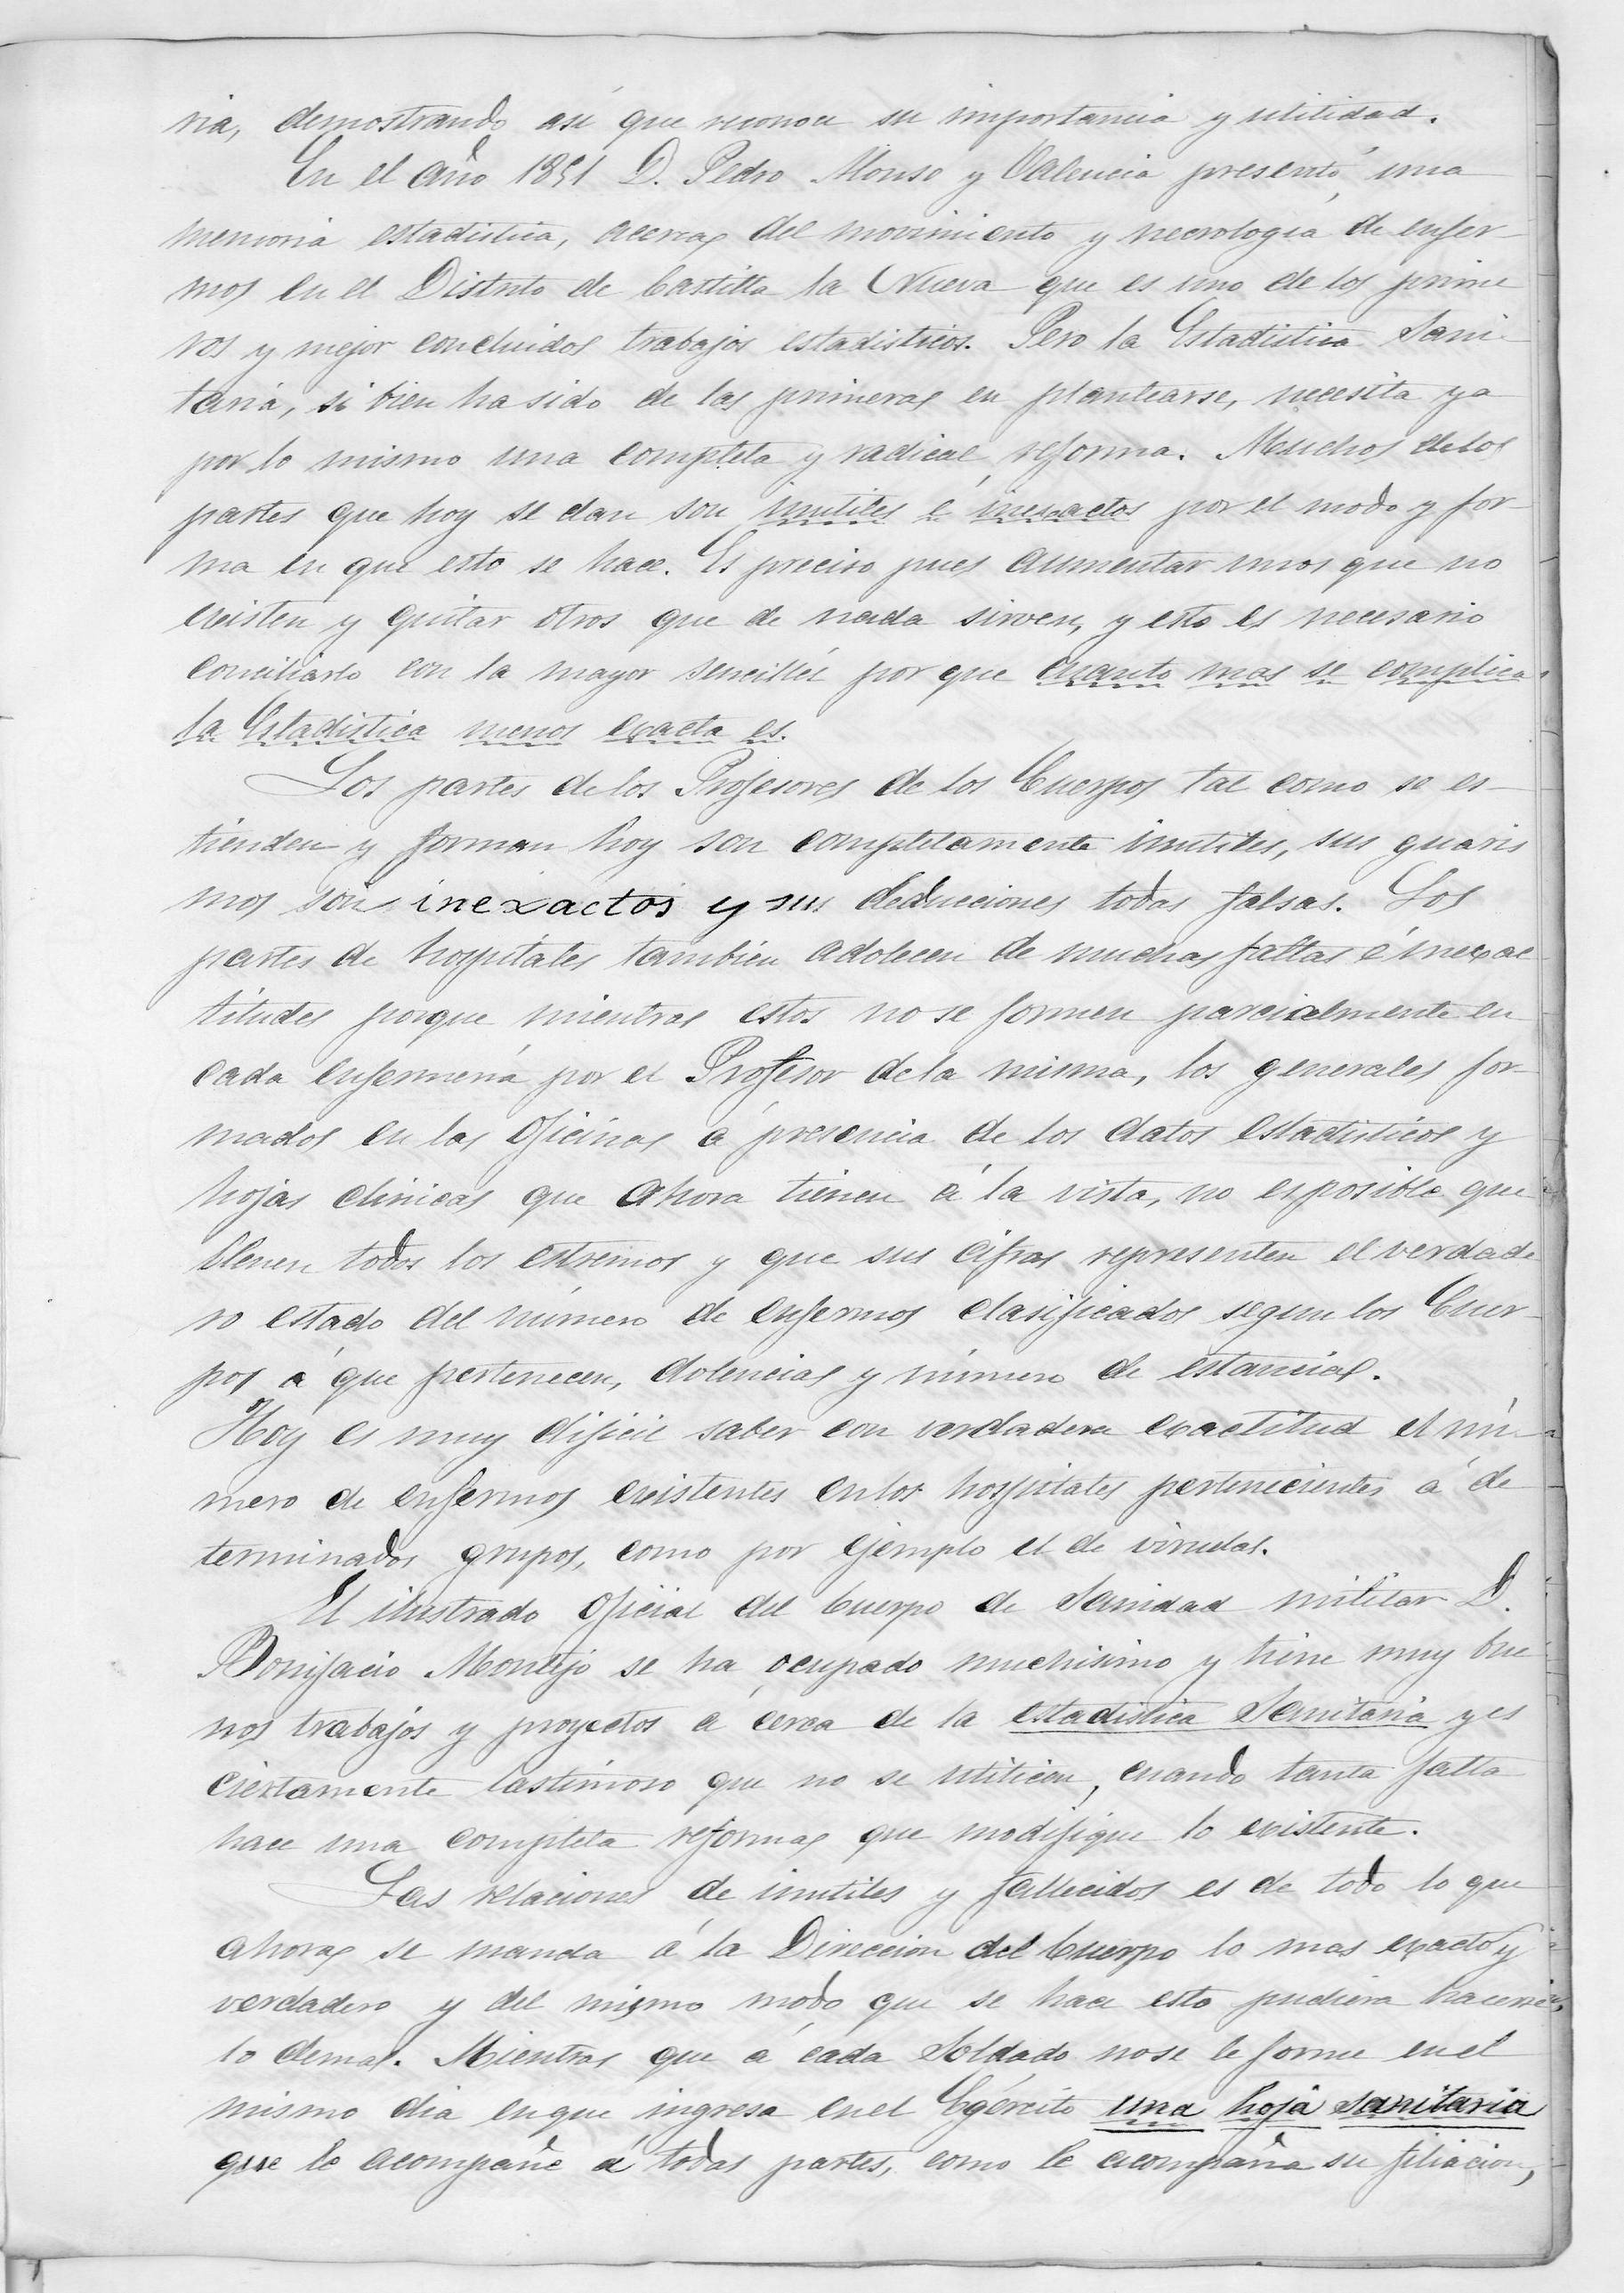 ria, demostrando así que reconoce su importancia y utilidad.
En el año 1851 D. Pedro Alonso y Valencia presentó una
memoria estadistica, acerca del movimiento y necrología de enfer-
mos en el Distrito de Castilla la Nueva que es uno de los prime
ros y mejor concluidos trabajos estadisticos. Pero la Estadistica Sani-
taria, si bien ha sido de las primeras en plantearse, necesita ya
por lo mismo una completa y radical reforma. Muchos de los
partes que hoy se dan son inutiles é inexactos por el modo y for-
ma en que esto se hace. Es preciso pues aumentar unos que no
existen y quitar otros que de nada sirven, y esto es necesario
conciliarlo con la mayor sencilléz por que cuanto mas se complica
la Estadistica menos exacta es.
Los partes de los Profesores de los Cuerpos tal como se es-
tienden y forman hoy son completamente inutiles, sus guaris
mos son inexactos y sus deducciones todas falsas. Los
partes de hospitales tambien adolecen de muchas faltas é inexac-
titudes porque mientras estos no se formen parcialmente en
cada enfermería por el Profesor de la misma, los generales for-
mados en las oficinas á presencia de los datos estadisticos y
hojas clínicas que ahora tienen á la vista, no es posible que
llenen todos los estremos y que sus cifras representen el verdade
ro estado del número de enfermos clasificados segun los Cuer-
pos á que pertenecen, dolencias y número de estancias.
Hoy es muy dificil saber con verdadera exactitud el nú-
mero de enfermos existentes en los hospitales pertenecientes á de
terminados grupos, como por ejemplo el de viruelas.
El ilustrado oficial del Cuerpo de Sanidad militar D.
Bonifacio Montejo se ha ocupado muchisimo y tiene muy bue
nos trabajos y proyectos á cerca de la estadistica Sanitaria y es
ciertamente lastimoso que no se utilicen, cuando tanta falta
hace una completa reforma que modifique lo existente.
Las relaciones de inutiles y fallecidos es de todo lo que
ahora se manda á la Direccion del Cuerpo lo mas exacto y
verdadero y del mismo modo que se hace esto pudiera hacerse
lo demas. Mientras que á cada Soldado no se le forme en el
mismo dia en que ingresa en el Egército una hoja sanitaria
que le acompañe á todas partes, como le acompaña su filiacion,